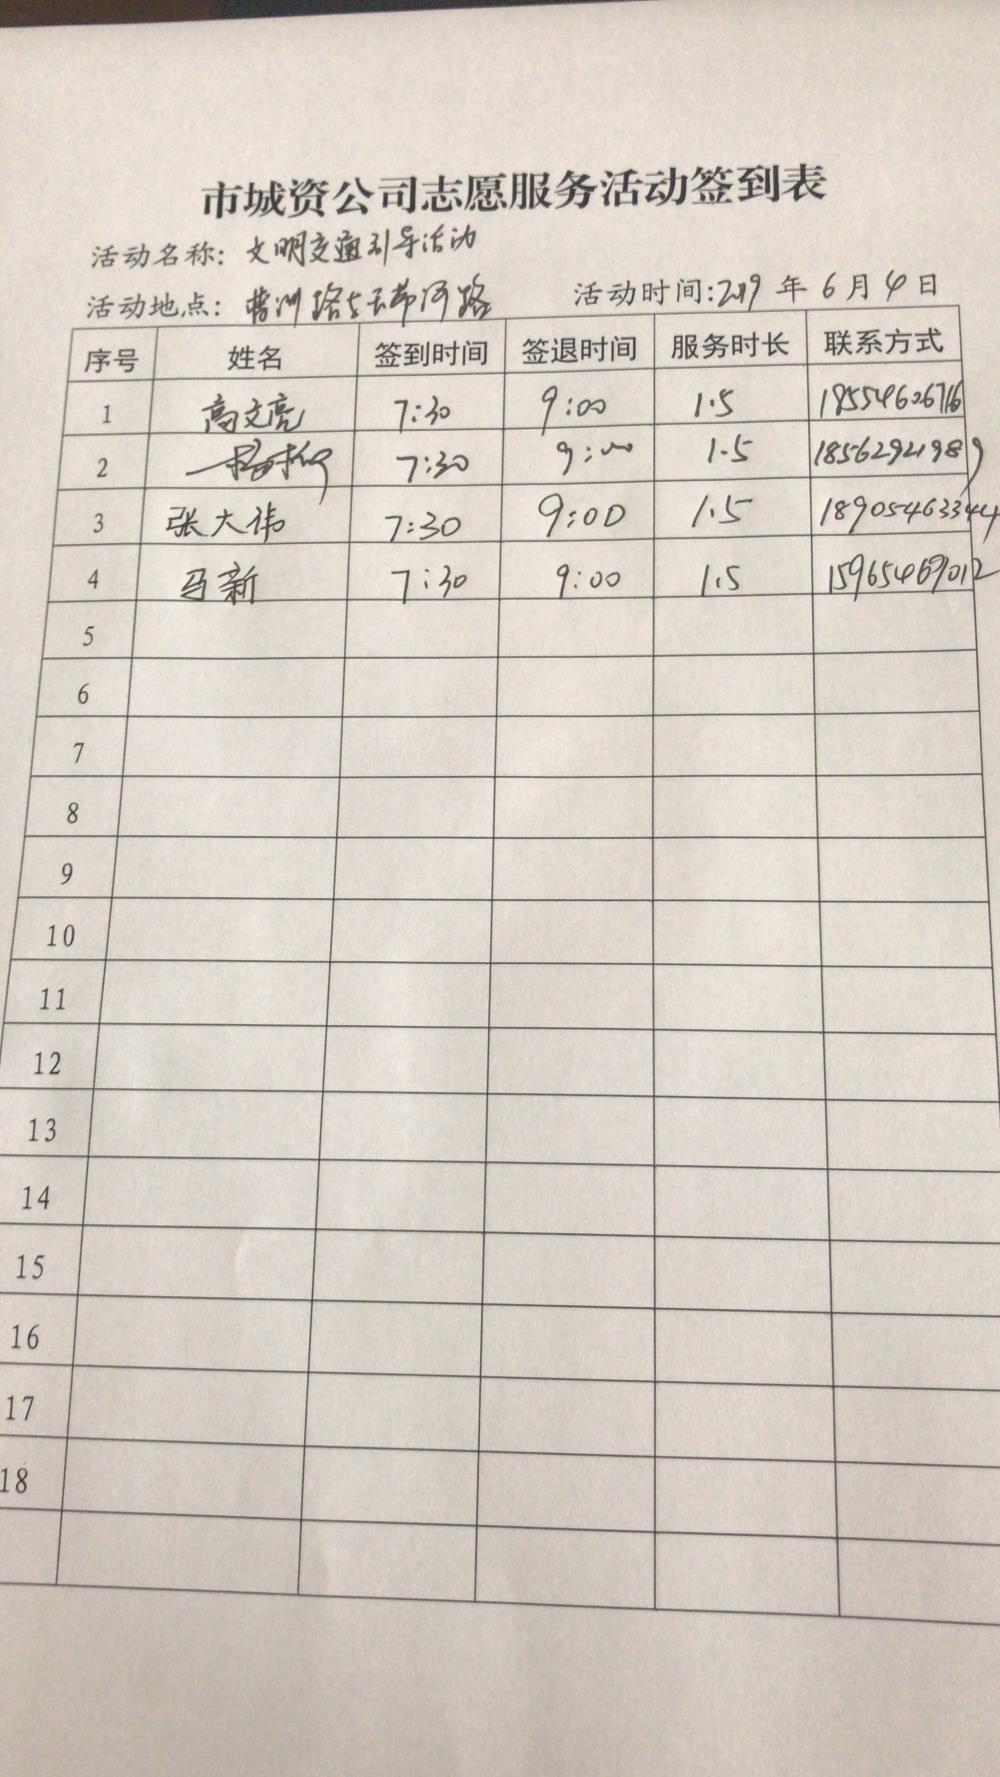 市城资公司志愿服务活动签到表
活动名称: 文明交通引导活动
活动地点: 曹州路与云部河路 活动时间:2019 年 6 月 4 日
序号 姓名 签到时间 签退时间 服务时长 联系方式
1 高文亮 7:30 9:00 1.5 18554606716
2 7:30 9:00 1.5 18562921989
3 张大伟 7:30 9:00 1.5 18905463344
4 马新 7:30 9:00 1.5 15965469012
5
6
7
8
9
10
11
12
13
14
15
16
17
18